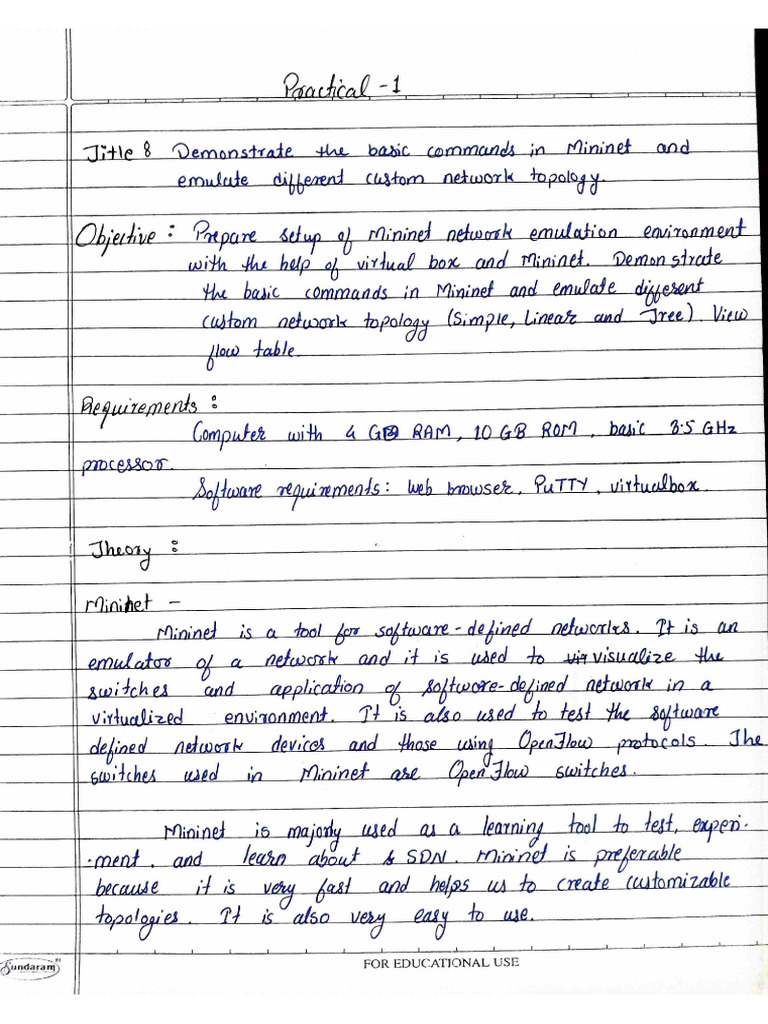 Practical -1
Title : Demonstrate the basic commands in Mininet and
emulate different custom network topology.
Objective : Prepare setup of Mininet network emulation environment
with the help of virtual box and Mininet. Demonstrate
the basic commands in Mininet and emulate different
custom network topology (Simple, Linear and Tree). View
flow table.
Requirements :
Computer with 4 GB RAM, 10 GB ROM, basic 3.5 GHz
processor.
Software requirements: web browser, PuTTY, virtualbox.
Theory :
Mininet -
Mininet is a tool for software-defined networks. It is an
emulator of a network and it is used to visualize the
switches and application of software-defined network in a
virtualized environment. It is also used to test the software
defined network devices and those using OpenFlow protocols. The
switches used in Mininet are OpenFlow switches.
Mininet is majorly used as a learning tool to test, experi-
-ment, and learn about SDN. Mininet is preferable
because it is very fast and helps us to create customizable
topologies. It is also very easy to use.
Sundaram
FOR EDUCATIONAL USE